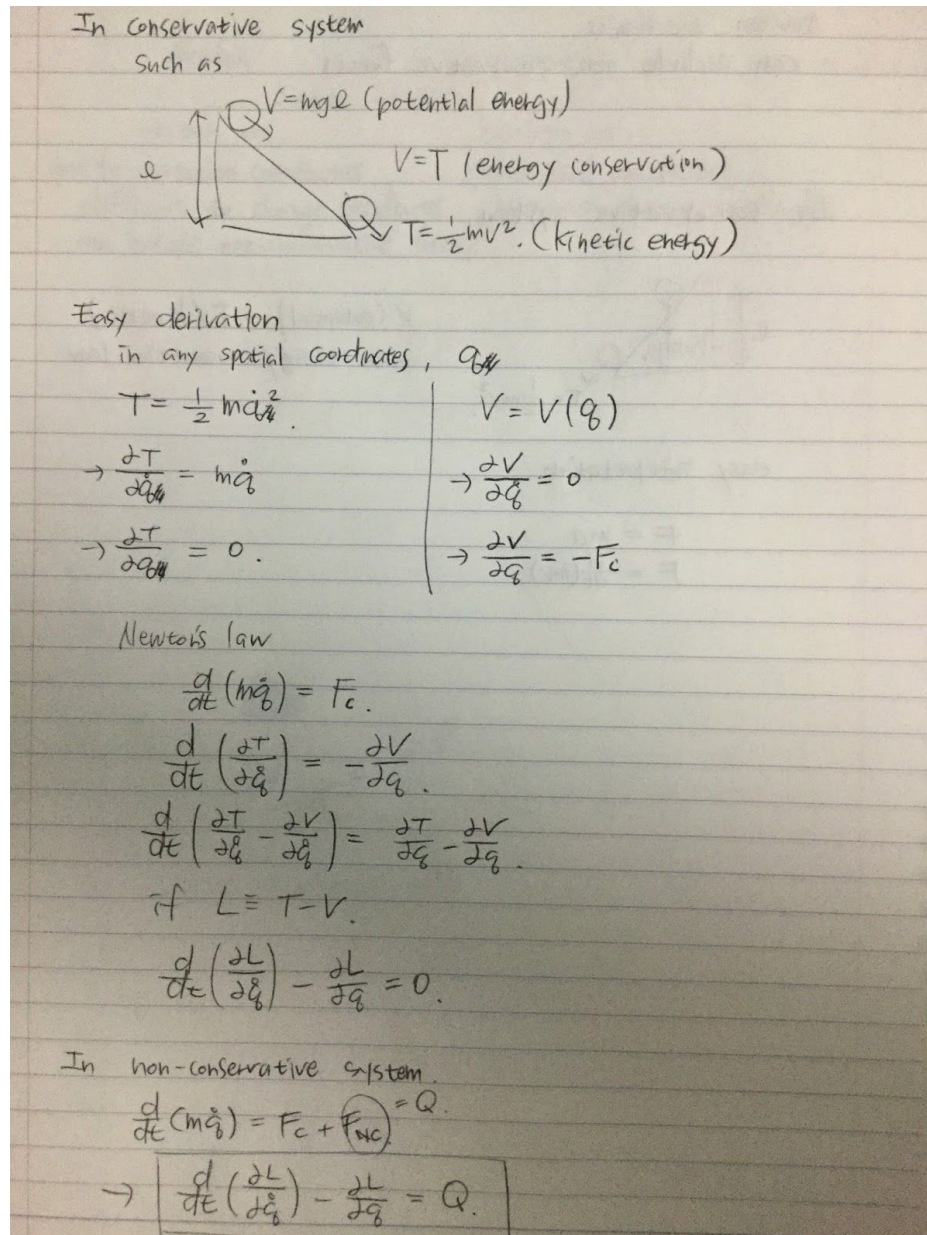 In conservative system
such as
V=mgl (potential energy)
l
V=T (energy conservation)
T=½mv². (kinetic energy)
Easy derivation
in any spatial coordinates, q
T = ½ mq̇².
V = V(q)
→ ∂T/∂q̇ = mq̇
→ ∂V/∂q̇ = 0
→ ∂T/∂q = 0.
→ ∂V/∂q = -Fc
Newton's law
d/dt (mq̇) = Fc.
d/dt (∂T/∂q̇) = -∂V/∂q.
d/dt (∂T/∂q̇ - ∂V/∂q̇) = ∂T/∂q - ∂V/∂q.
if L ≡ T-V.
d/dt (∂L/∂q̇) - ∂L/∂q = 0.
In non-conservative system.
d/dt (mq̇) = Fc + FNC = Q.
→ d/dt (∂L/∂q̇) - ∂L/∂q = Q.